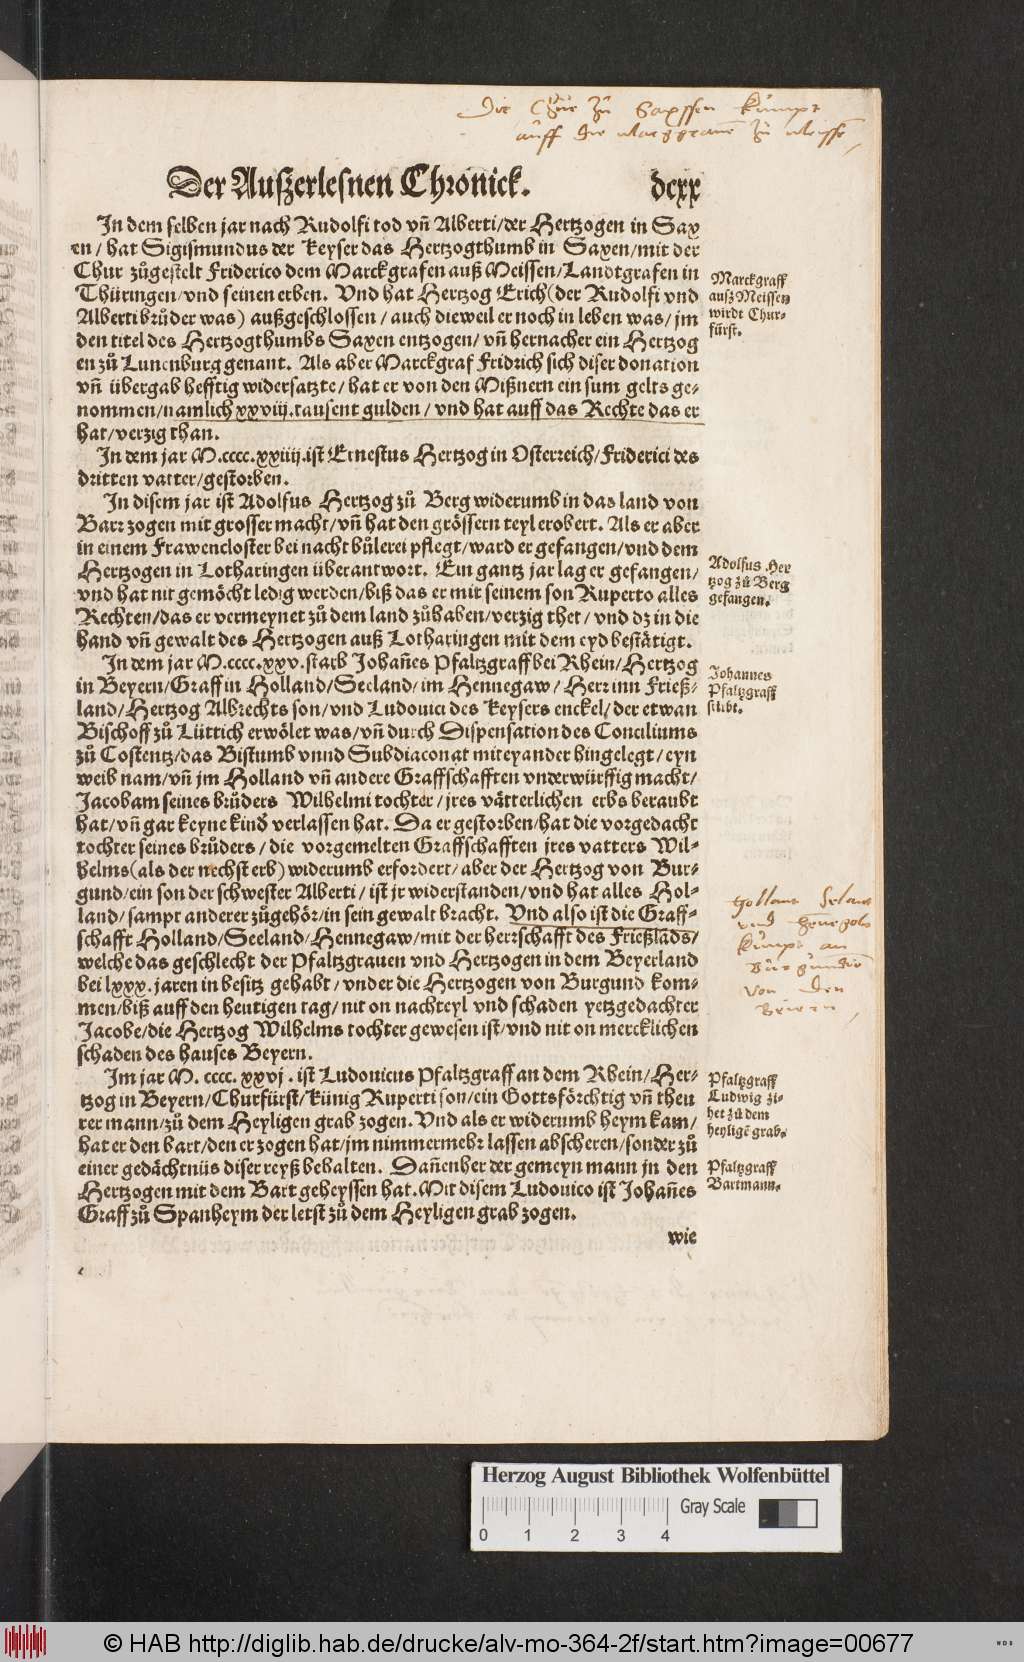 Die Chur zů Saxssen kumpt
auff die Marggraue zů Meissē
Der Außerlesnen Chronick. dcxx
In dem selben jar nach Rudolfi tod vñ Alberti/der Hertzogen in Sax
en/hat Sigismundus der keyser das Hertzogthumb in Saxen/mit der
Chur zůgestelt Friderico dem Marckgrafen auß Meissen/Landtgrafen in
Thüringen/vnd seinen erben. Vnd hat Hertzog Erich(der Rudolfi vnd
Alberti brůder was) außgeschlossen/auch dieweil er noch in leben was/jm
den titel des Hertzogthumbs Saxen entzogen/vñ hernacher ein Hertzog
en zů Lunenburg genant. Als aber Marckgraf Fridrich sich diser donation
vñ übergab hefftig widersatzte/hat er von den Mißnern ein sum gelts ge-
nommen/namlich xxviij.tausent gulden/vnd hat auff das Rechte das er
hat/verzig than.
In dem jar M.cccc.xxiiij.ist Ernestus Hertzog in Osterreich/Friderici des
dritten vatter/gestorben.
In disem jar ist Adolfus Hertzog zů Berg widerumb in das land von
Barr zogen mit grosser macht/vñ hat den grössern teyl erobert. Als er aber
in einem Frawencloster bei nacht bůlerei pflegt/ward er gefangen/vnd dem
Hertzogen in Lotharingen überantwort. Ein gantz jar lag er gefangen/
vnd hat nit gemöcht ledig werden/biß das er mit seinem son Ruperto alles
Rechten/das er vermeynet zů dem land zůhaben/verzig thet/vnd dz in die
hand vñ gewalt des Hertzogen auß Lotharingen mit dem eyd bestätigt.
In dem jar M.cccc.xxv.starb Johañes Pfaltzgraff bei Rhein/Hertzog
in Beyern/Graff in Holland/Seeland/im Hennegaw/Herr inn Frieß-
land/Hertzog Albrechts son/vnd Ludouici des keysers enckel/der etwan
Bischoff zů Lüttich erwölet was/vñ durch Dispensation des Conciliums
zů Costentz/das Bistumb vnnd Subdiaconat miteyander hingelegt/eyn
weib nam/vñ jm Holland vñ andere Graffschafften vnderwürffig macht/
Jacobam seines brůders Wilhelmi tochter/jres vätterlichen erbs beraubt
hat/vñ gar keyne kind verlassen hat. Da er gestorben/hat die vorgedacht
tochter seines brůders/die vorgemelten Graffschafften jres vatters Wil-
helms(als der nechst erb) widerumb erfordert/aber der Hertzog von Bur-
gund/ein son der schwester Alberti/ist jr widerstanden/vnd hat alles Hol-
land/sampt anderer zůgehör/in sein gewalt bracht. Vnd also ist die Graff-
schafft Holland/Seeland/Hennegaw/mit der herrschafft des Frießlāds/
welche das geschlecht der Pfaltzgrauen vnd Hertzogen in dem Beyerland
bei lxxx.jaren in besitz gehabt/vnder die Hertzogen von Burgund kom-
men/biß auff den heutigen tag/nit on nachteyl vnd schaden yetzgedachter
Jacobe/die Hertzog Wilhelms tochter gewesen ist/vnd nit on mercklichen
schaden des hauses Beyern.
Im jar M.cccc.xxvj.ist Ludouicus Pfaltzgraff an dem Rhein/Her-
tzog in Beyern/Churfürst/künig Ruperti son/ein Gottsförchtig vñ theu
rer mann/zů dem Heyligen grab zogen. Vnd als er widerumb heym kam/
hat er den bart/den er zogen hat/jm nimmermehr lassen abscheren/sonder zů
einer gedächtnüs diser reyß behalten. Dañenher der gemeyn mann jn den
Hertzogen mit dem Bart geheyssen hat. Mit disem Ludouico ist Johañes
Graff zů Spanheym der letst zů dem Heyligen grab zogen.
wie
Marckgraff
auß Meissen
wirdt Chur-
fürst.
Adolfus Her
tzog zů Berg
gefangen.
Johannes
Pfaltzgraff
stirbt.
Hollant Selant
vnd
kumpt an
Burgundie
von den
Beiern
Pfaltzgraff
Ludwig zi-
het zů dem
heyligē grab.
Pfaltzgraff
Bartmann.
Herzog August Bibliothek Wolfenbüttel
Gray Scale
0 1 2 3 4
© HAB http://diglib.hab.de/drucke/alv-mo-364-2f/start.htm?image=00677